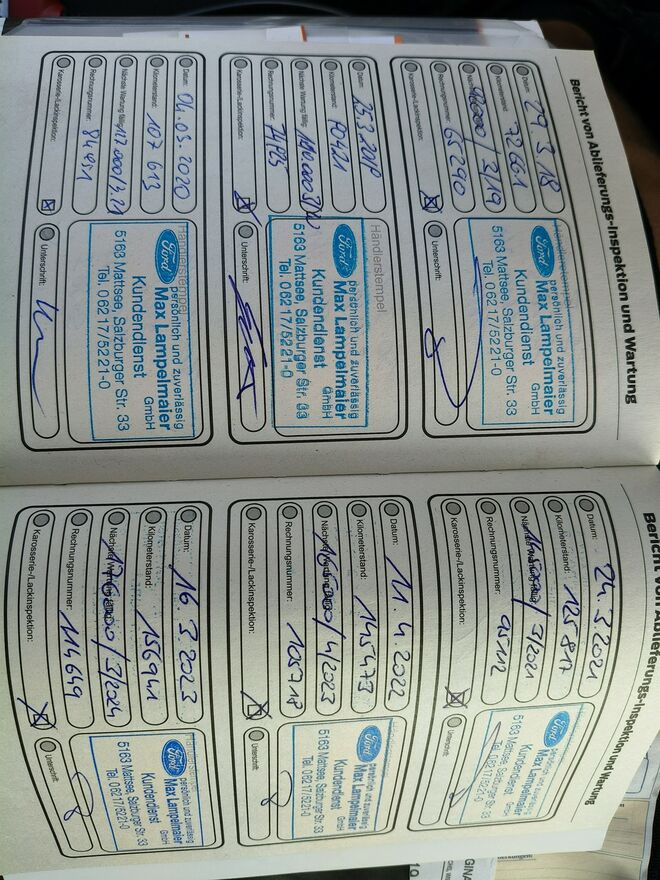 Bericht von Ablieferungs-Inspektion und Wartung
Datum: 29.3.18
Kilometerstand: 72661
90000/3/19
Rechnungsnummer: 65290
Karosserie-/Lackinspektion:
Ford
persönlich und zuverlässig
Max Lampelmaier
GmbH
Kundendienst
5163 Mattsee, Salzburger Str. 33
Tel. 0 62 17/5221-0
Unterschrift:
Datum: 25.3.2019
Kilometerstand: 90421
Nächste Wartung fällig:
Rechnungsnummer:
Karosserie-/Lackinspektion:
Händlerstempel
Ford
persönlich und zuverlässig
Max Lampelmaier
GmbH
Kundendienst
5163 Mattsee, Salzburger Str. 33
Tel. 0 62 17/5221-0
Unterschrift:
Datum: 04.03.2020
Kilometerstand: 107613
Nächste Wartung fällig: 127.000/3.21
Rechnungsnummer: 84951
Karosserie-/Lackinspektion:
Händlerstempel
Ford
persönlich und zuverlässig
Max Lampelmaier
GmbH
Kundendienst
5163 Mattsee, Salzburger Str. 33
Tel. 0 62 17/5221-0
Unterschrift:
Bericht von Ablieferungs-Inspektion und Wartung
Datum: 24.3.2021
Kilometerstand: 125817
Nächste Wartung fällig:
Rechnungsnummer: 95112
Karosserie-/Lackinspektion:
Ford
persönlich und zuverlässig
Max Lampelmaier
GmbH
Kundendienst
5163 Mattsee, Salzburger Str. 33
Tel. 0 62 17/5221-0
Unterschrift:
Datum: 11.4.2022
Kilometerstand: 145473
Nächste Wartung fällig: 165000/4/2023
Rechnungsnummer: 105718
Karosserie-/Lackinspektion:
Ford
persönlich und zuverlässig
Max Lampelmaier
GmbH
Kundendienst
5163 Mattsee, Salzburger Str. 33
Tel. 0 62 17/5221-0
Unterschrift:
Datum: 16.3.2023
Kilometerstand: 156941
Nächste Wartung fällig: 176000/3/2024
Rechnungsnummer: 114649
Karosserie-/Lackinspektion:
Händlerstempel
Ford
persönlich und zuverlässig
Max Lampelmaier
GmbH
Kundendienst
5163 Mattsee, Salzburger Str. 33
Tel. 0 62 17/5221-0
Unterschrift: